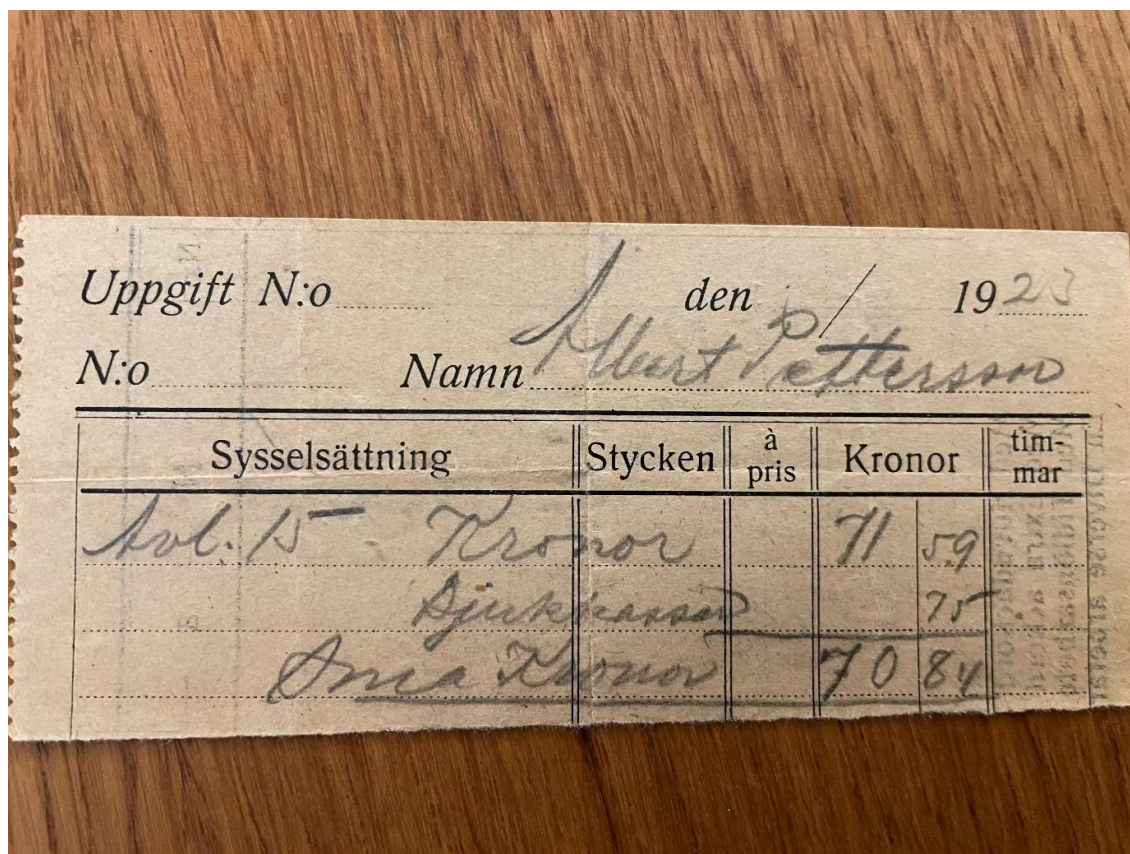 Uppgift N:o den / 1923
N:o Namn Albert Pettersson
Sysselsättning Stycken à pris Kronor tim-mar
Avl. 15 Kronor 71 59
Sjukkassan 75
Sma Kronor 70 84